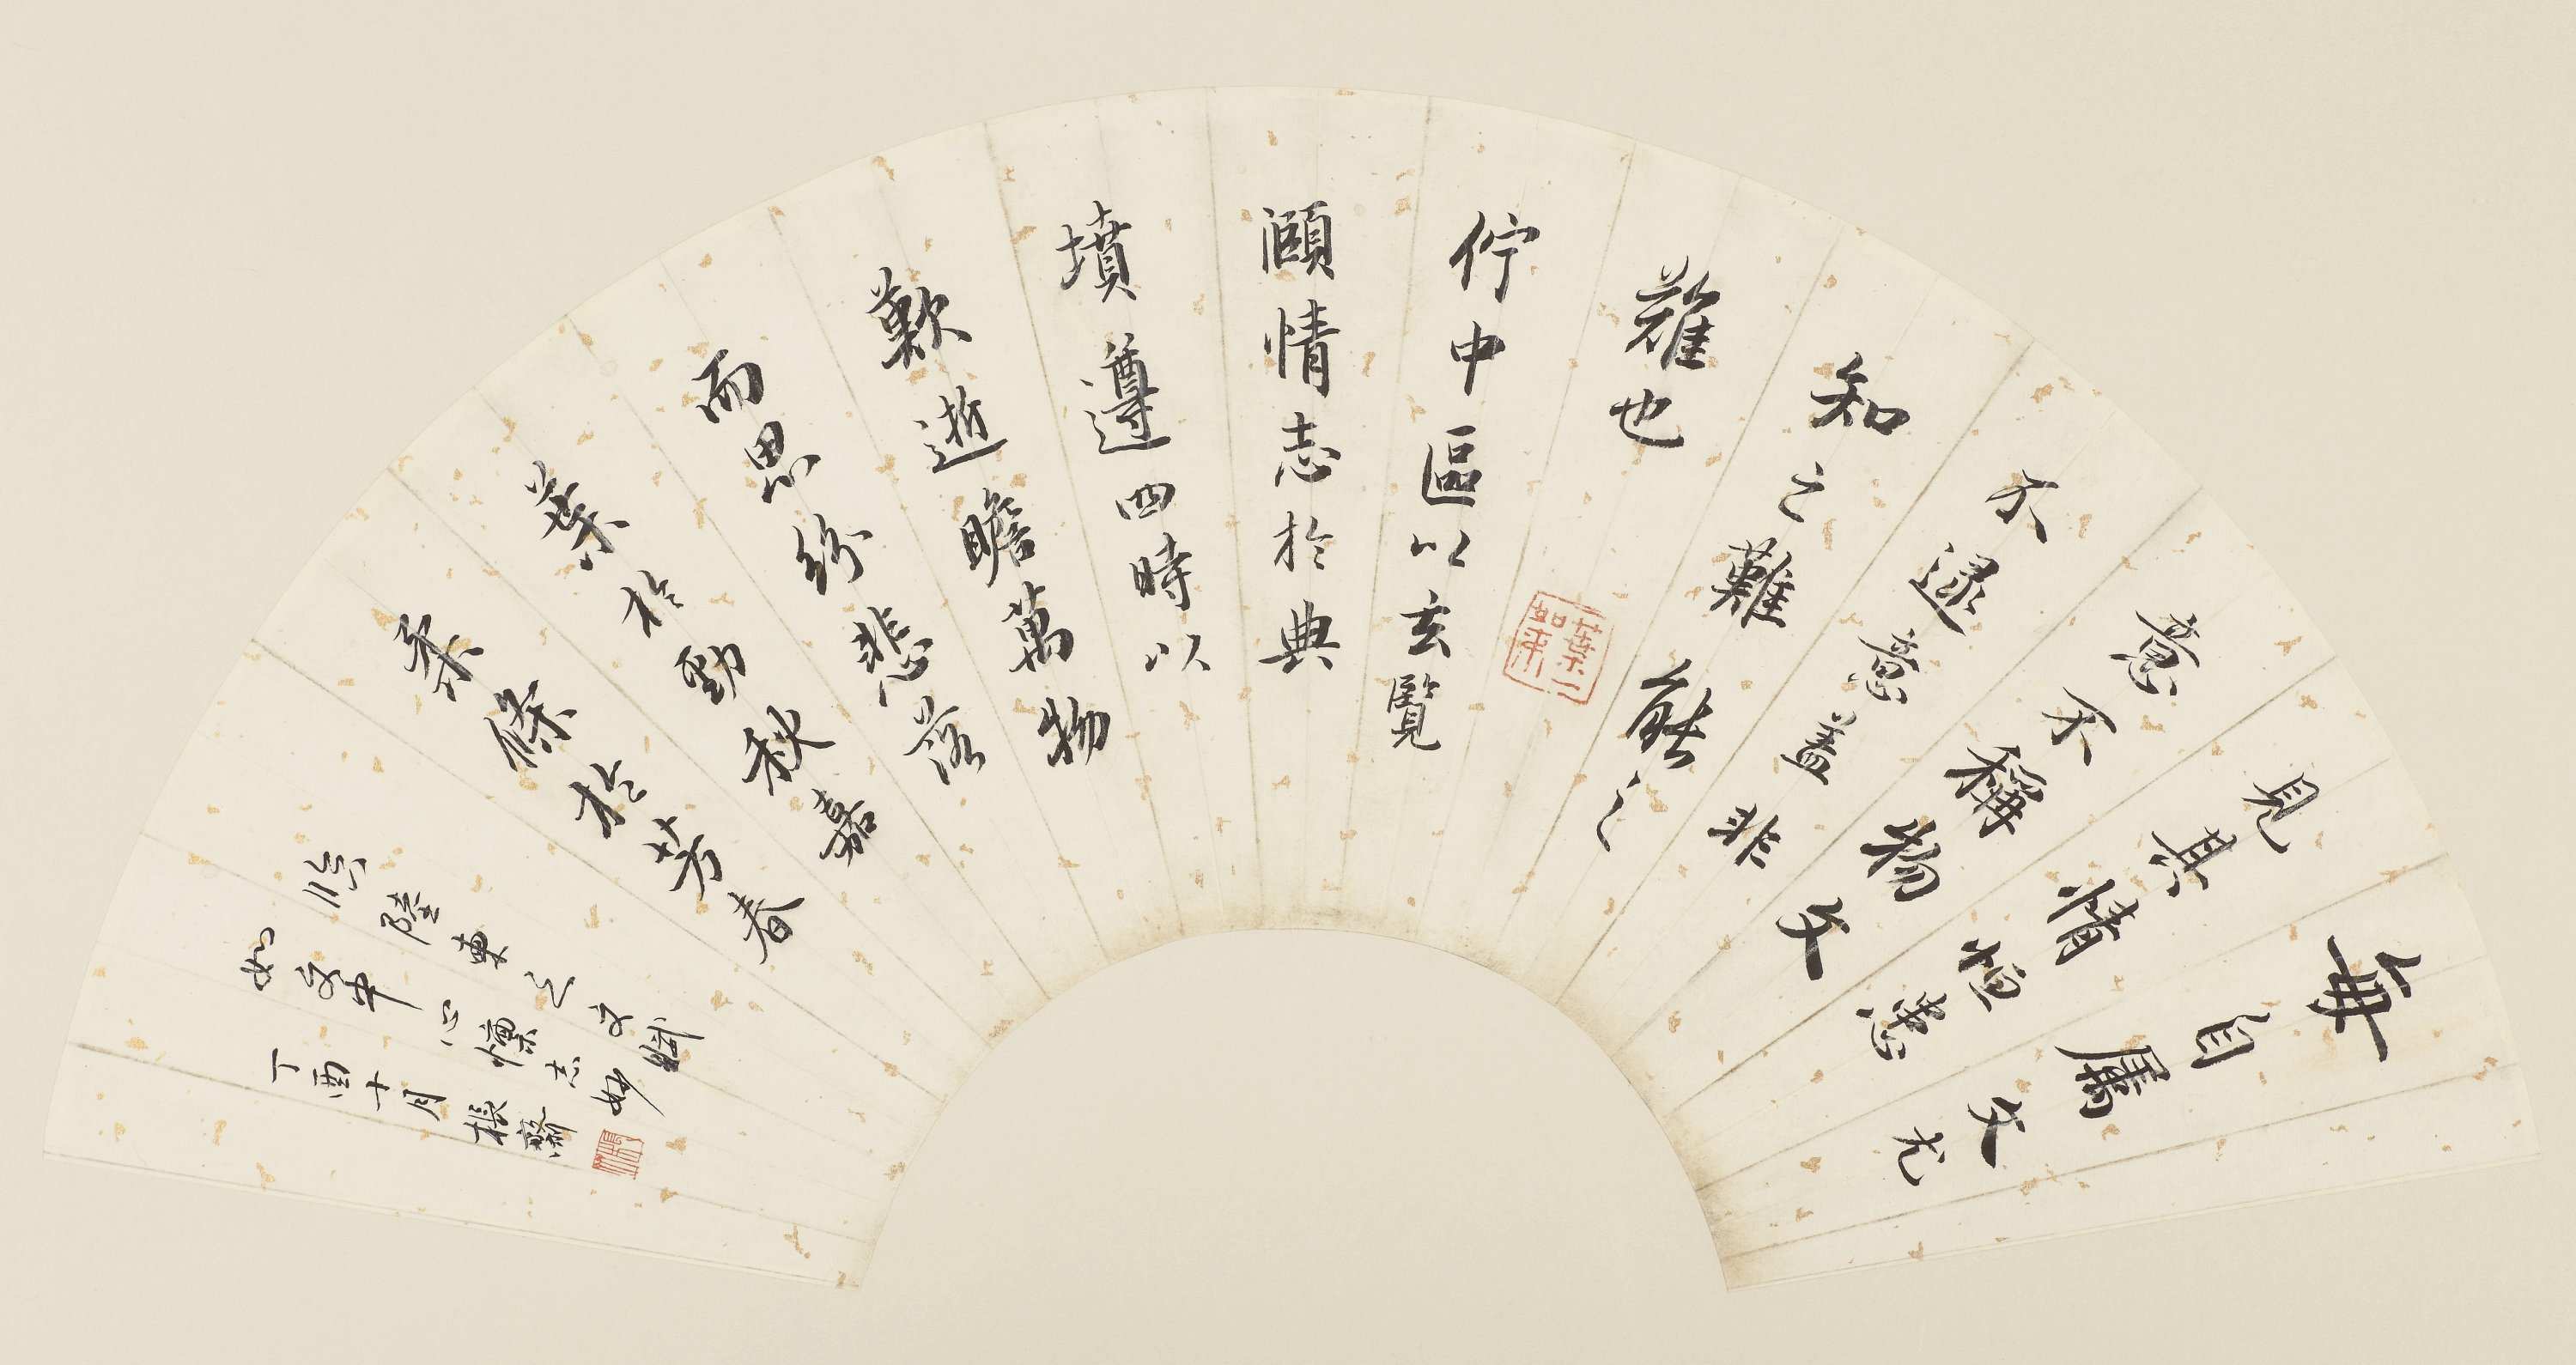 每自屬文尤
見其情恒患
意不稱物文
不逮意蓋非
知之難能之
難也
佇中區以玄覽
頤情志於典
墳遵四時以
歎逝瞻萬物
而思紛悲落
葉於勁秋嘉
柔條於芳春
臨陸柬之文賦
如心懍志妙
丁酉十月棖齋